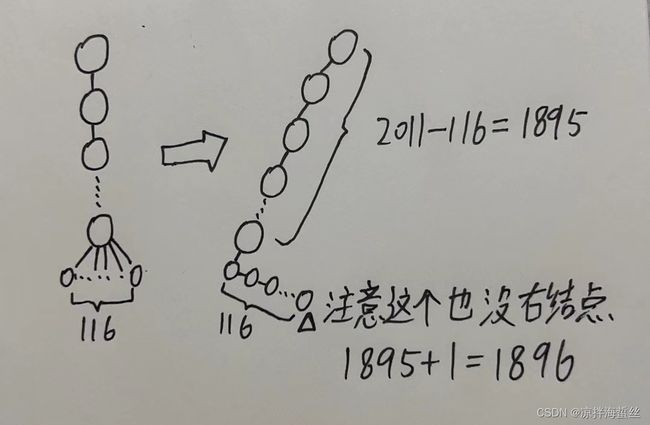 2011-116=1895
116
116
注意这个也没右结点
1895+1=1896
CSDN @凉拌海蜇丝